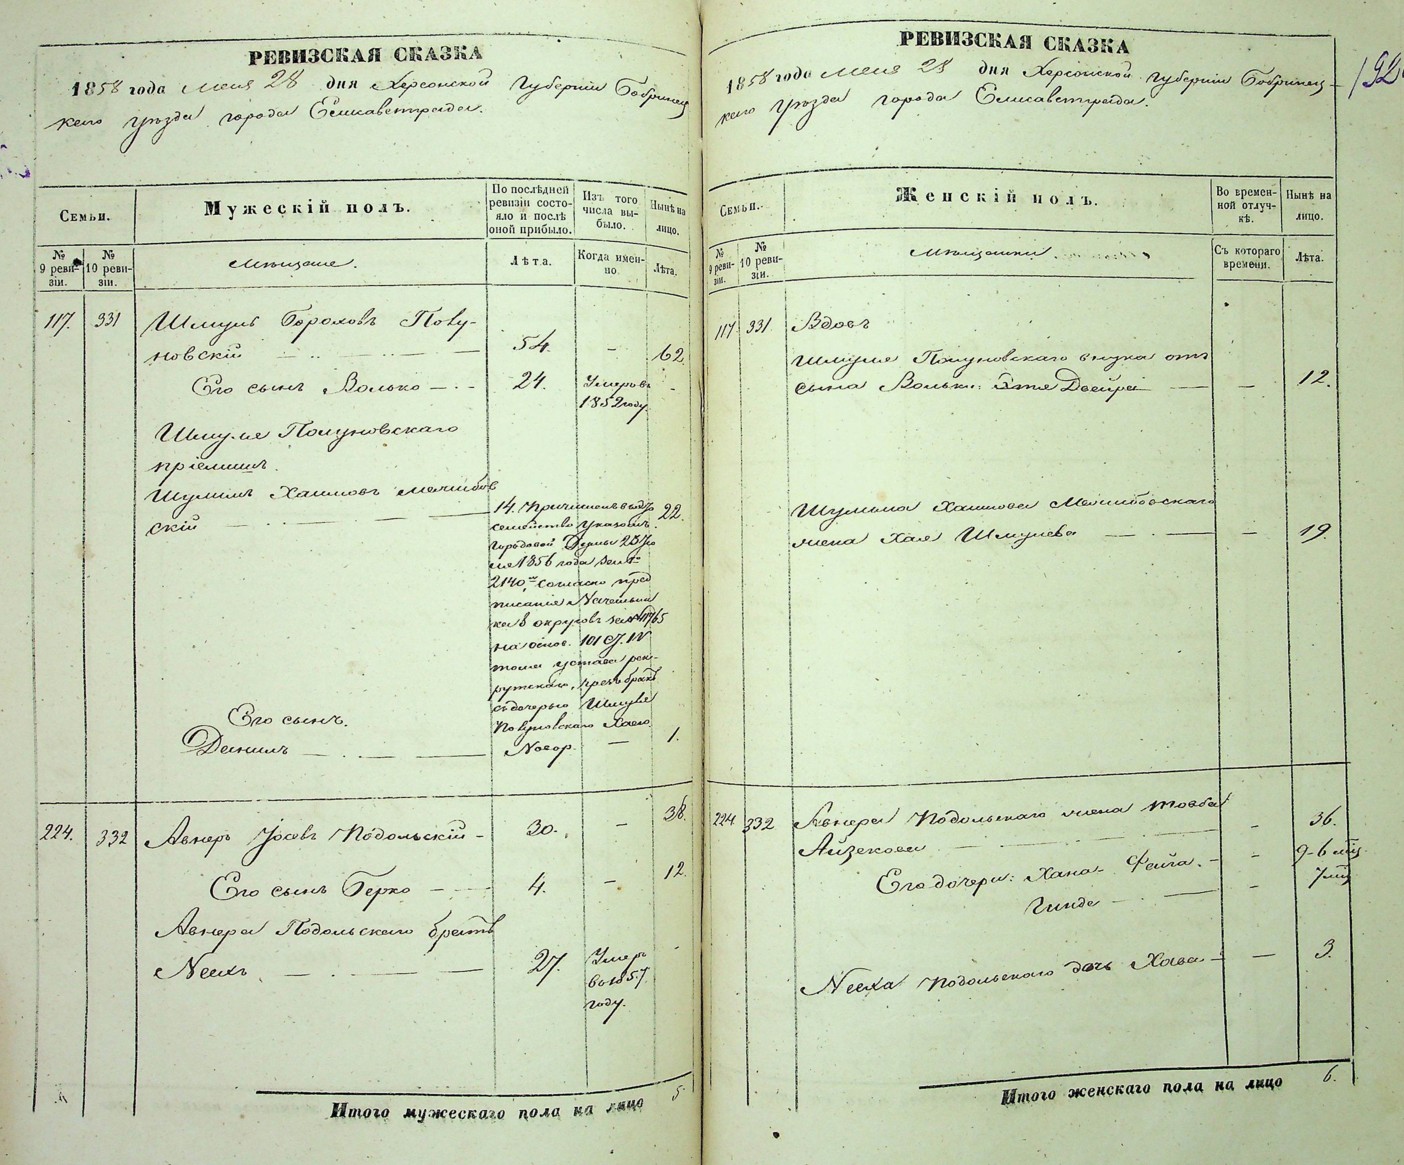 РЕВИЗСКАЯ СКАЗКА
1858 года мая 28 дня Херсонской Губернiи Бобринец
каго уѣзда города Елисаветграда.
Семьи.
Мужескiй полъ.
По послѣдней ревизiи состояло и послѣ оной прибыло.
Изъ того числа выбыло.
Нынѣ на лицо.
№ 9 ревизiи.
№ 10 ревизiи.
Мѣщане.
Лѣта.
Когда именно
Лѣта.
117. 331 Шмуль Бороховъ Полу-
новскiй 54. - 62.
Его сынъ Волько 24. Умеръ въ -
1852 году.
Шмуля Полуновскаго
прiемышъ.
Шулимъ Хаимовъ
скiй
14. 22.
семейство указомъ
Городовой Думы
1856 года
2140, согласно пред
писанiя Начальни
ка округовъ
на основ. 101 ст. IV
тома устава рек-
рутскаго, чрезъ бракъ
съ дочерью Шмуля
Полуновскаго Хаею
Его сынъ.
Данилъ Новор. - 1.
224. 332 Авнеръ Іосевъ Подольскiй - 30. - 38.
Его сынъ Берко 4. - 12.
Авнера Подольскаго братъ
27. Умеръ -
въ 1857
году.
Итого мужескаго пола на лицо 5
РЕВИЗСКАЯ СКАЗКА
1858 года мая 28 дня Херсонской Губернiи Бобринец-
каго уѣзда города Елисаветграда.
192
Семьи.
Женскiй полъ.
Во временной отлучкѣ.
Нынѣ на лицо.
№ 9 ревизiи.
№ 10 ревизiи.
Мѣщанки
Съ котораго времени.
Лѣта.
117 331 Вдовъ
Шмуля Полуновскаго внука отъ
сына Вольки: Двейра - 12.
Шулима Хаимова
жена Хая Шмулева - 19.
224 332 Авнера Подольскаго жена Товба
Айзекова - 36.
Его дочери: Хана-Фейга. - 9-6 мѣц.
Гинде - 7 мѣц
Подольскаго дочь Хава - 3.
Итого женскаго пола на лицо 6.